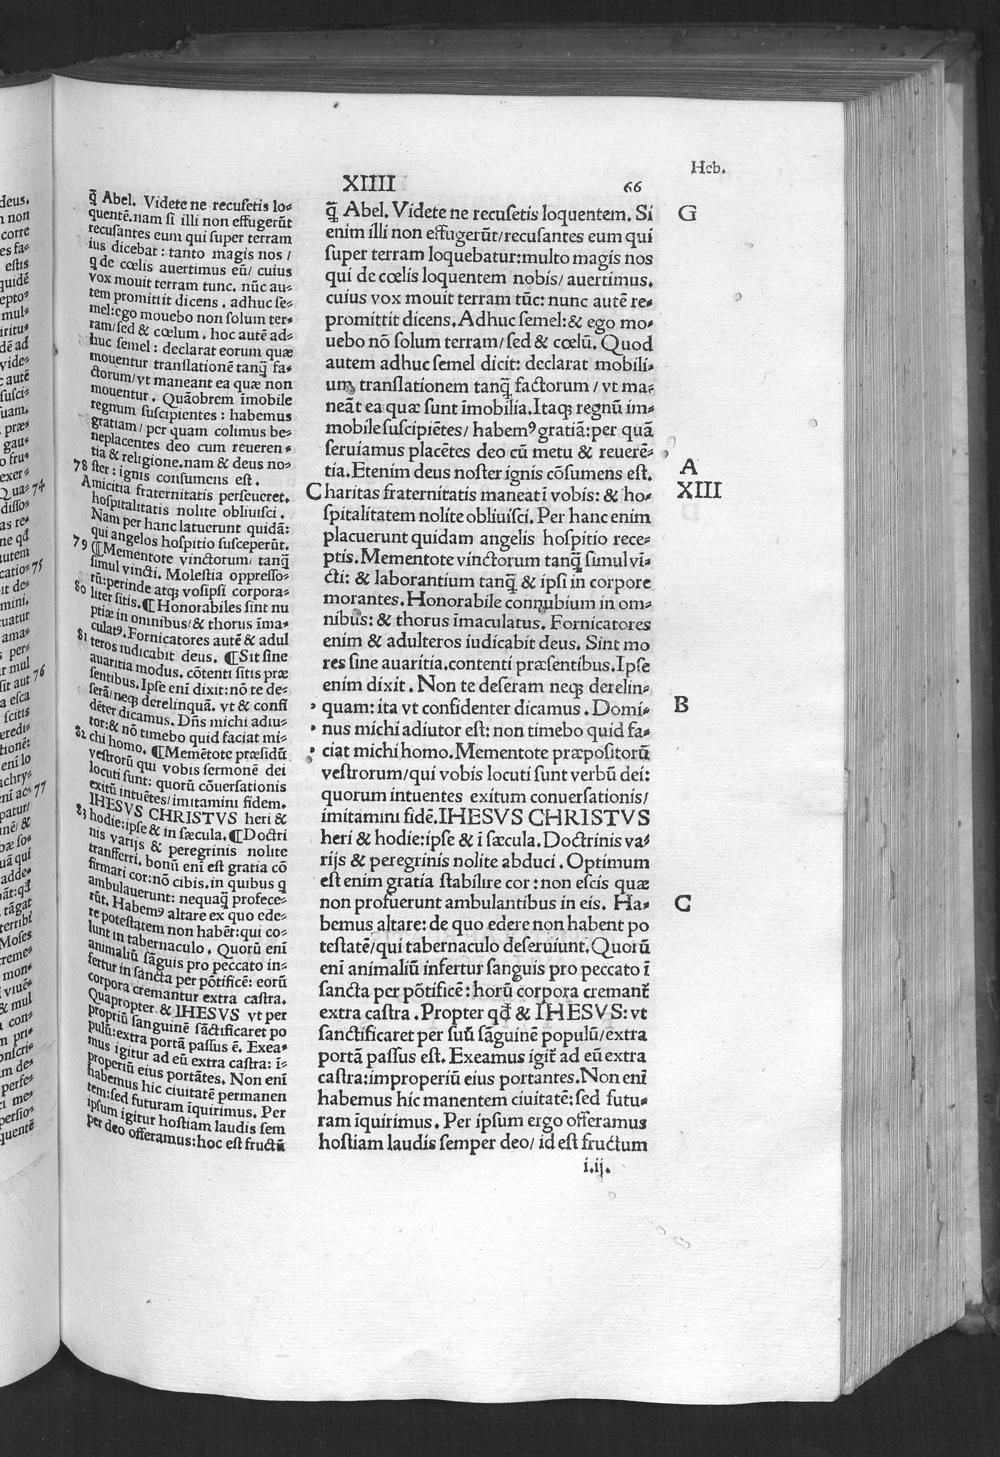 Heb.
XIIII
66
q̃ Abel. Videte ne recuſetis lo⸗
quentē. nam ſi illi non effugerūt
recuſantes eum qui ſuper terram
ius dicebat : tanto magis nos /
q de cœlis auertimus eū/ cuius
vox mouit terram tunc. nūc au⸗
tem promittit dicens . adhuc ſe⸗
mel: ego mouebo non ſolum ter⸗
ram/ ſed & cœlum . hoc autē ad⸗
huc ſemel : declarat eorum quæ
mouentur tranſlationē tanq̃ fa⸗
ctorum/ vt maneant ea quæ non
mouentur . Quāobrem īmobile
regnum ſuſcipientes : habemus
gratiam/ per quam colimus be⸗
neplacentes deo cum reueren⸗
tia & religione. nam & deus no⸗
78 ſter : ignis conſumens eſt .
Amicitia fraternitatis perſeueret.
hoſpitalitatis nolite obliuiſci .
Nam per hanc latuerunt quidā:
qui angelos hoſpitio ſuſceperūt.
79 ¶Mementote vinctorum/ tanq̃
ſimul vincti. Moleſtia oppreſſo⸗
rū: perinde atq; voſipſi corpora⸗
80 liter ſitis. ¶ Honorabiles ſint nu
ptiæ in omnibus/ & thorus īma⸗
culatꝰ. Fornicatores autē & adul
81 teros iudicabit deus. ¶Sit ſine
auaritia modus. cōtenti ſitis præ
ſentibus. Ipſe eni dixit: nō te de⸗
ſerā/ neq; derelinquā. vt & confi
dēter dicamus. Dn̄s michi adiu⸗
tor: & nō timebo quid faciat mi⸗
82 chi homo. ¶Memētote præſidū
veſtrorū qui vobis ſermonē dei
locuti ſunt: quorū cōuerſationis
exitū intuētes/ imitamini fidem.
IHESVS CHRISTVS heri &
83 hodie: ipſe & in ſæcula. ¶Doctri
nis varijs & peregrinis nolite
tranſferri. bonū eni eſt gratia cō
firmari cor: nō cibis. in quibus q
ambulauerunt: nequaq̃ profece⸗
rūt. Habemꝰ altare ex quo ede⸗
re poteſtatem non habēt: qui co⸗
lunt in tabernaculo . Quorū eni
animaliū ſāguis pro peccato in⸗
fertur in ſancta per pōtificē: eorū
corpora cremantur extra caſtra.
Quapropter & IHESVS vt per
propriū ſanguinē ſāctificaret po
pulū: extra portā paſſus ē. Exea⸗
mus igitur ad eū extra caſtra: ī⸗
properiū eius portātes. Non eni
habemus hic ciuitatē permanen
tem: ſed futuram īquirimus. Per
ipſum igitur hoſtiam laudis ſem
per deo offeramus: hoc eſt fructū
q̃ Abel. Videte ne recuſetis loquentem. Si G
enim illi non effugerūt/ recuſantes eum qui
ſuper terram loquebatur: multo magis nos
qui de cœlis loquentem nobis/ auertimus.
cuius vox mouit terram tūc: nunc autē re⸗
promittit dicens. Adhuc ſemel: & ego mo⸗
uebo nō ſolum terram/ ſed & cœlū. Quod
autem adhuc ſemel dicit: declarat mobili⸗
um tranſlationem tanq̃ factorum / vt ma⸗
neāt ea quæ ſunt īmobilia. Itaq; regnū im⸗
mobile ſuſcipiētes/ habemꝰ gratiā: per quā
ſeruiamus placētes deo cū metu & reuerē⸗
tia. Etenim deus noſter ignis cōſumens eſt. A
Charitas fraternitatis maneat ī vobis: & ho⸗ XIII
ſpitalitatem nolite obliuiſci. Per hanc enim
placuerunt quidam angelis hoſpitio rece⸗
ptis. Mementote vinctorum tanq̃ ſimul vī⸗
cti: & laborantium tanq̃ & ipſi in corpore
morantes. Honorabile connubium in om⸗
nibus: & thorus īmaculatus. Fornicatores
enim & adulteros iudicabit deus. Sint mo
res ſine auaritia. contenti præſentibus. Ipſe
enim dixit . Non te deſeram neq; derelin⸗
quam: ita vt confidenter dicamus . Domi⸗ B
nus michi adiutor eſt: non timebo quid fa⸗
ciat michi homo. Mementote præpoſitorū
veſtrorum/ qui vobis locuti ſunt verbū dei:
quorum intuentes exitum conuerſationis/
imitamini fidē. IHESVS CHRISTVS
heri & hodie: ipſe & ī ſæcula. Doctrinis va⸗
rijs & peregrinis nolite abduci . Optimum
eſt enim gratia ſtabilire cor : non eſcis quæ
non profuerunt ambulantibus in eis. Ha⸗ C
bemus altare: de quo edere non habent po
teſtatē/ qui tabernaculo deſeruiunt. Quorū
eni animaliū infertur ſanguis pro peccato ī
ſancta per pōtificē: horū corpora cremant᷑
extra caſtra . Propter qd̄ & IHESVS: vt
ſanctificaret per ſuū ſāguinē populū/ extra
portā paſſus eſt. Exeamus igit᷑ ad eū extra
caſtra: improperiū eius portantes. Non eni
habemus hic manentem ciuitatē: ſed futu⸗
ram īquirimus. Per ipſum ergo offeramus
hoſtiam laudis ſemper deo/ id eſt fructum
i.ij.